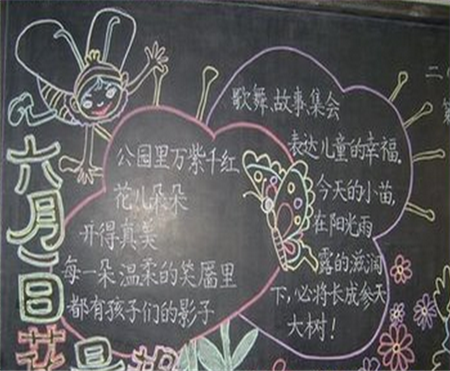 六月一日
公园里万紫千红
花儿朵朵
开得真美
每一朵温柔的笑靥里
都有孩子们的影子
歌舞、故事、集会
表达儿童的幸福.
今天的小苗,
在阳光雨
露的滋润
下,必将长成参天
大树!
二(